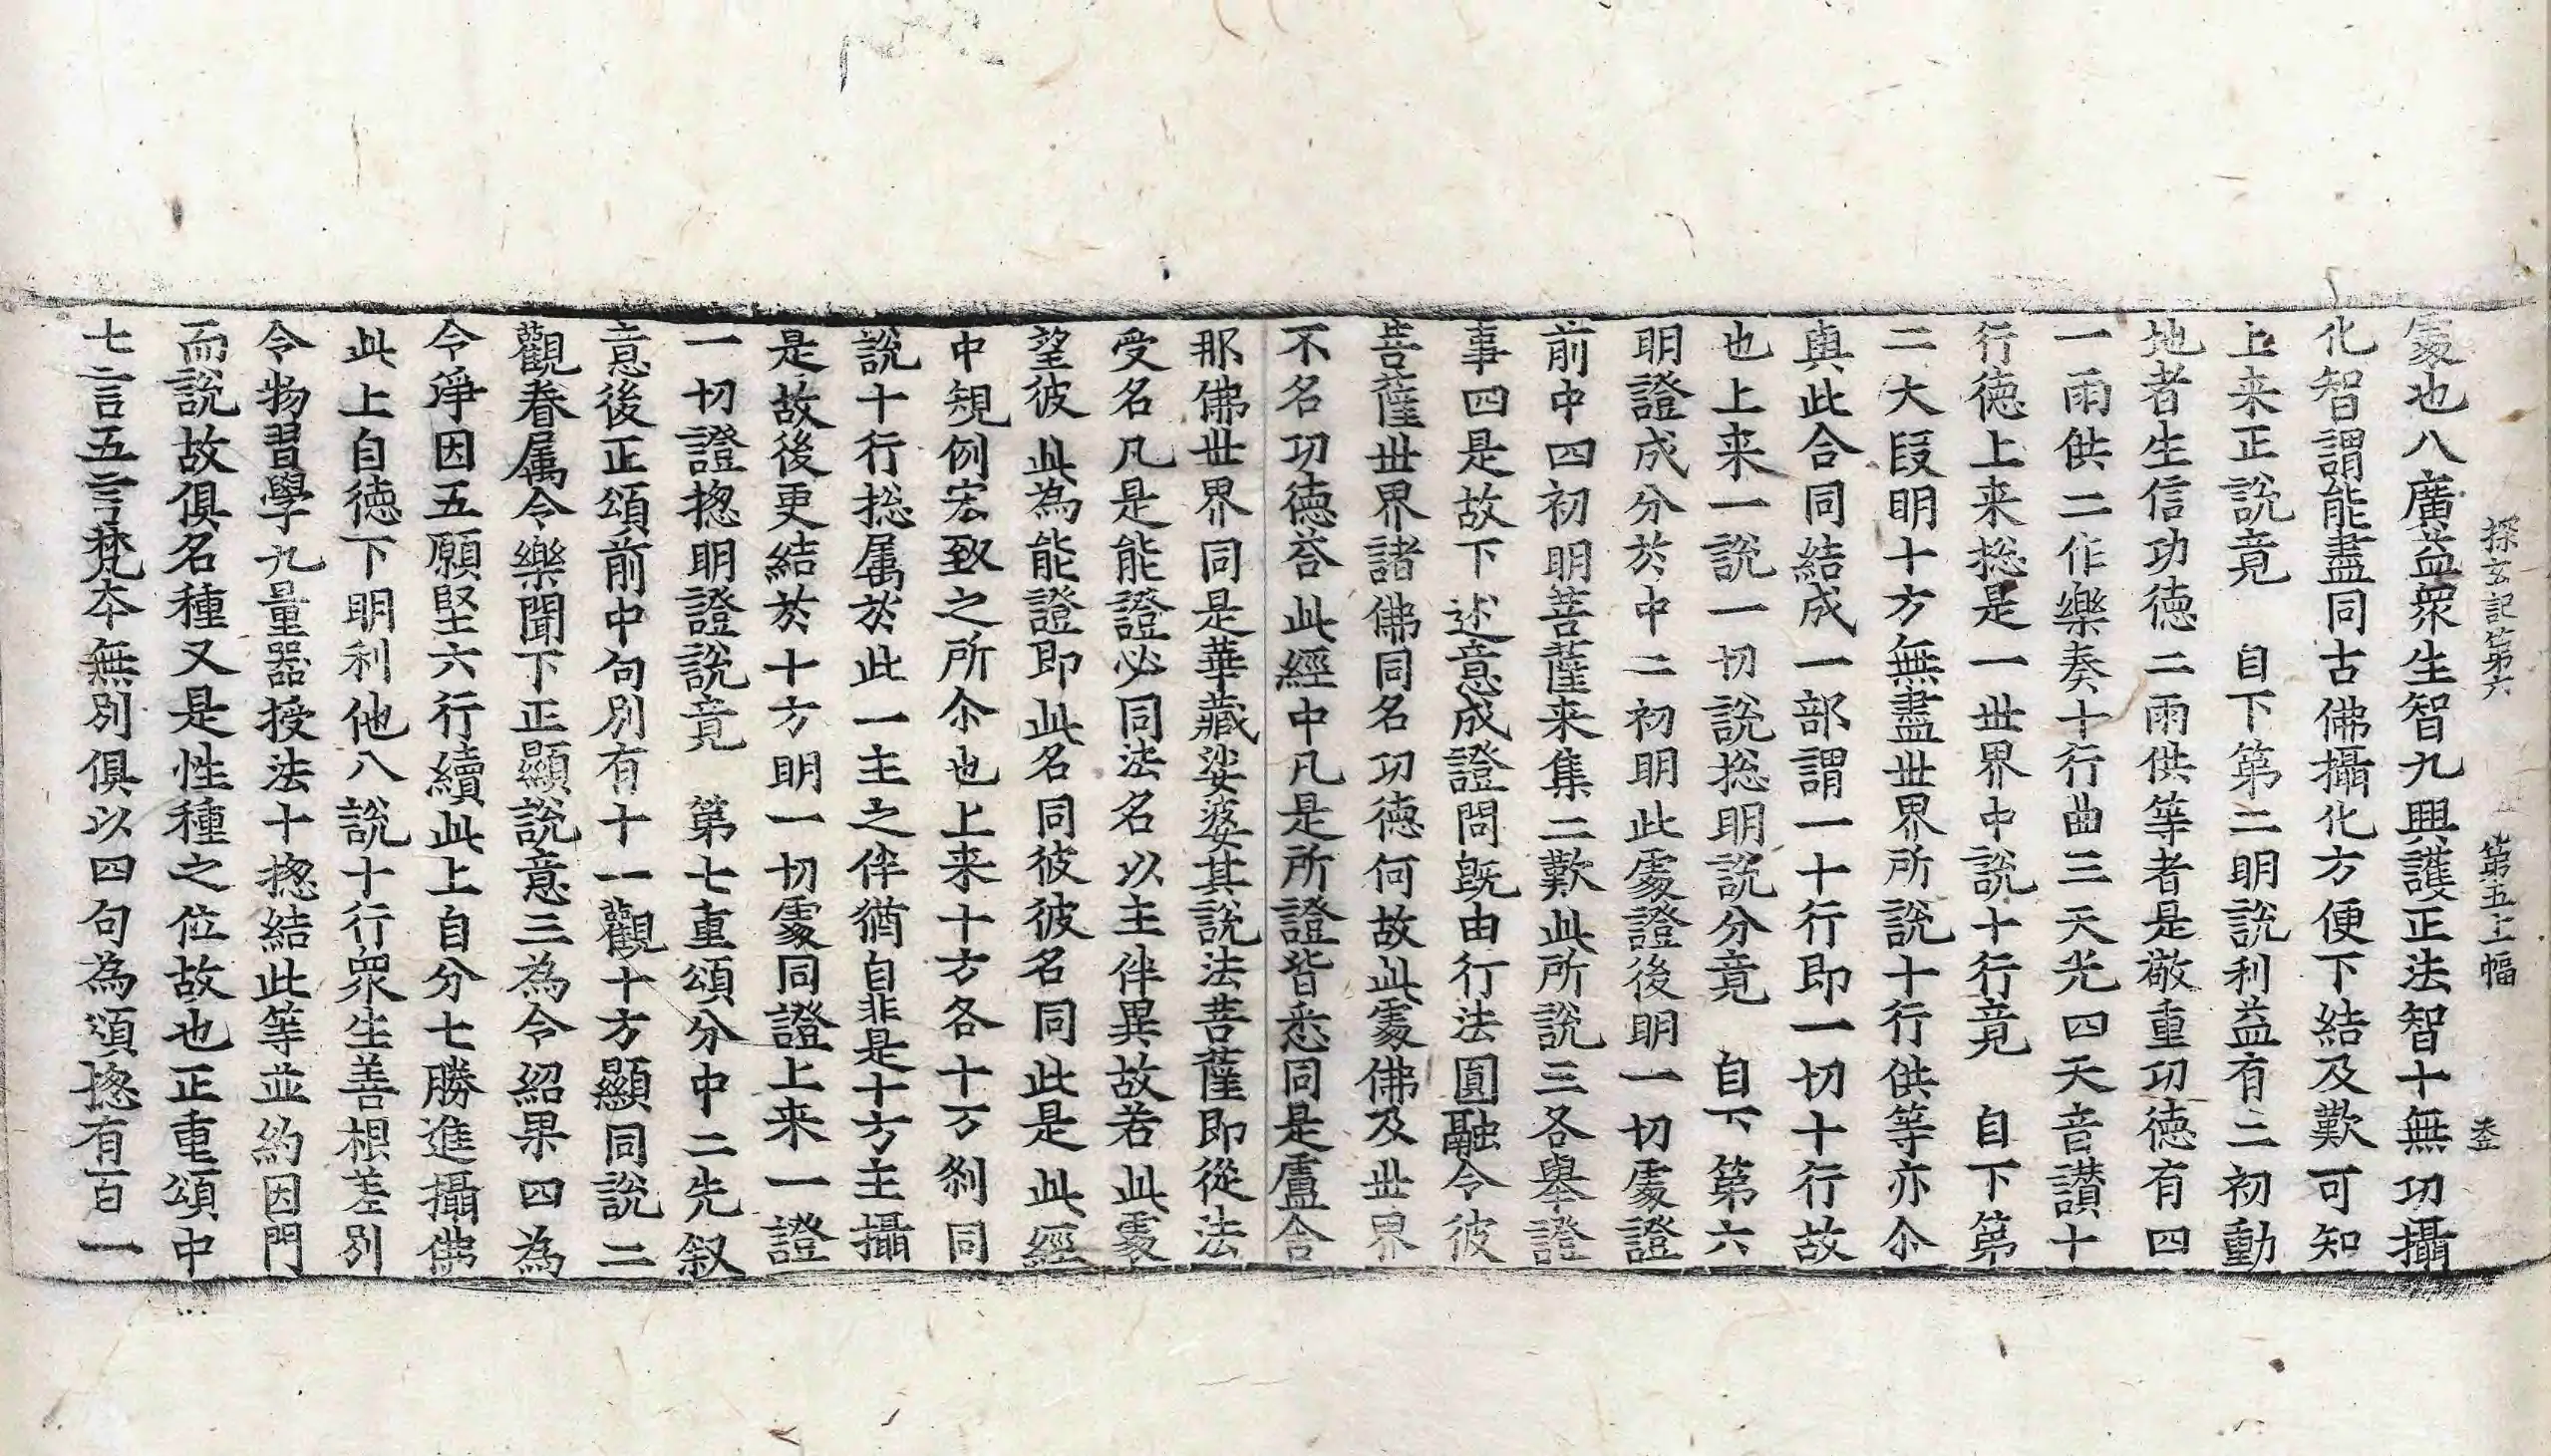 探玄記第六 第五上幅
䖏也八廣益衆生智九興護正法智十無功攝
化智謂能盡同古佛攝化方便下結及歎可知
上来正說竟 自下第二明說利益有二初動
地者生信功德二雨供等者是敬重功德有四
一雨供二作樂奏十行曲三天光四天音讃十
行德上来捴是一世界中說十行竟 自下第
二大段明十方無盡世界所說十行供等亦尒
與此合同結成一部謂一十行即一切十行故
也上来一說一切說捴明說分竟 自下第六
明證成分於中二初明此䖏證後明一切䖏證
前中四初明菩薩来集二歎此所說三各舉證
事四是故下述意成證問既由行法圓融令彼
菩薩世界諸佛同名功德何故此䖏佛及世界
不名功德荅此經中凡是所證皆悉同是盧舍
那佛世界同是華藏娑婆其說法菩薩即從法
受名凡是能證必同法名以主伴異故若此䖏
望彼此為能證即此名同彼彼名同此是此經
中䂓例宏致之所尒也上来十方各十万刹同
說十行捴属於此一主之伴猶自非是十方主攝
是故後更結於十方明一切䖏同證上来一證
一切證捴明證說竟 第七重頌分中二先叙
意後正頌前中句別有十一觀十方顯同說二
觀眷属令樂聞下正顯說意三為令紹果四為
令淨因五願堅六行續此上自分七勝進攝佛
此上自德下明利他八說十行衆生善根差別
令物習學九量器授法十捴結此等並約因門
而說故俱名種又是性種之位故也正重頌中
七言五言梵夲無別俱以四句為頌捴有百一